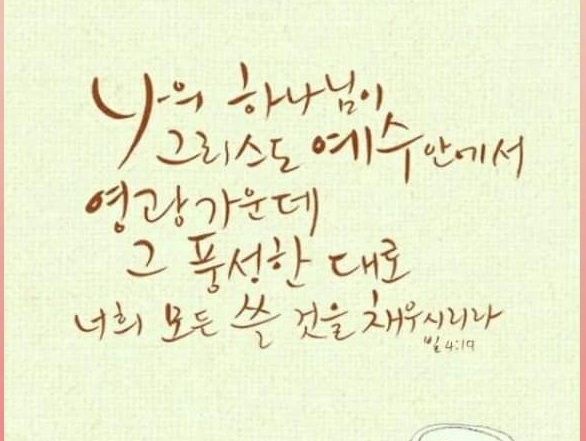 나의 하나님이
그리스도 예수 안에서
영광 가운데
그 풍성한 대로
너희 모든 쓸 것을 채우시리라
빌 4:19